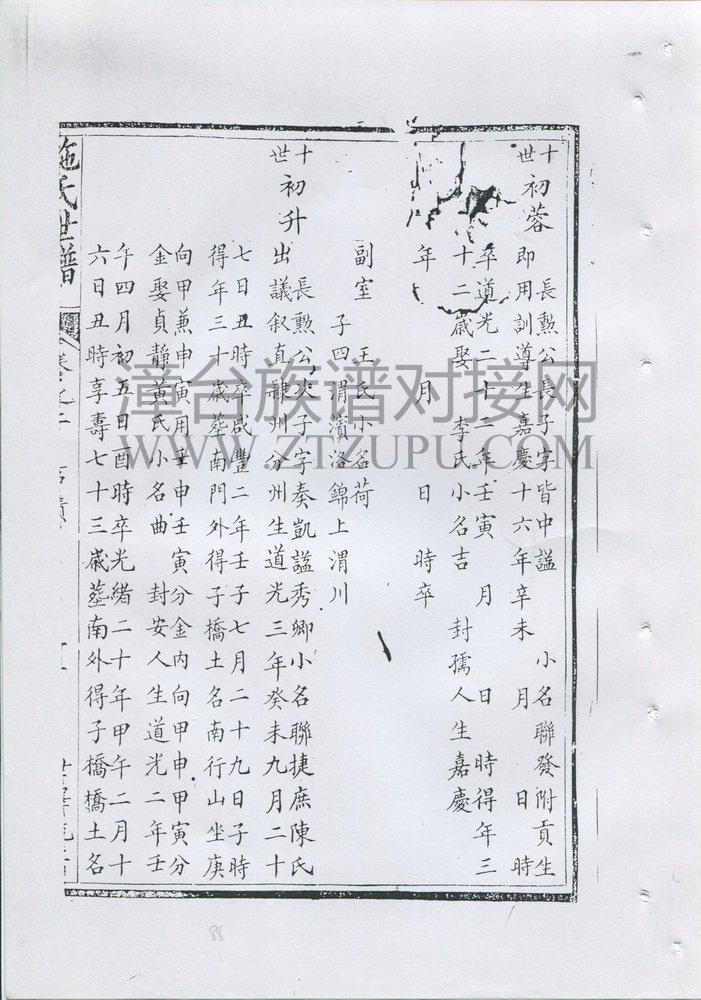 十世
初蓉
長勳公長子字皆中謚 小名聯發附貢生
即用訓導生嘉慶十六年辛未 月 日 時
卒道光二十二年壬寅 月 日 時得年三
十二歲娶 李氏小名吉 封孺人生嘉慶
年 月 日 時卒
副室 王氏小名荷
子四渭濱洛錦上渭川
十世
初升
長勳公次子字奏凱謚秀卿小名聯捷庶陳氏
出議叙直隸州分州生道光三年癸未九月二十
七日丑時卒咸豐二年壬子七月二十九日子時
得年三十歲塟南門外得子橋土名南行山坐庚
向甲兼申寅用 申壬寅分金內向甲申甲寅分
金娶貞靜黃氏小名曲 封安人生道光二年壬
午四月初五日酉時卒光緒二十年甲午二月十
六日丑時享壽七十三歲塟南外得子橋橋土名
施氏世譜
漳台族谱对接网
WWW.ZTZUPU.COM
88